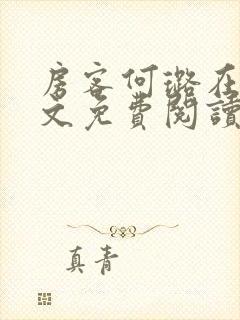 房客何璐在
文免費閱讀
真青